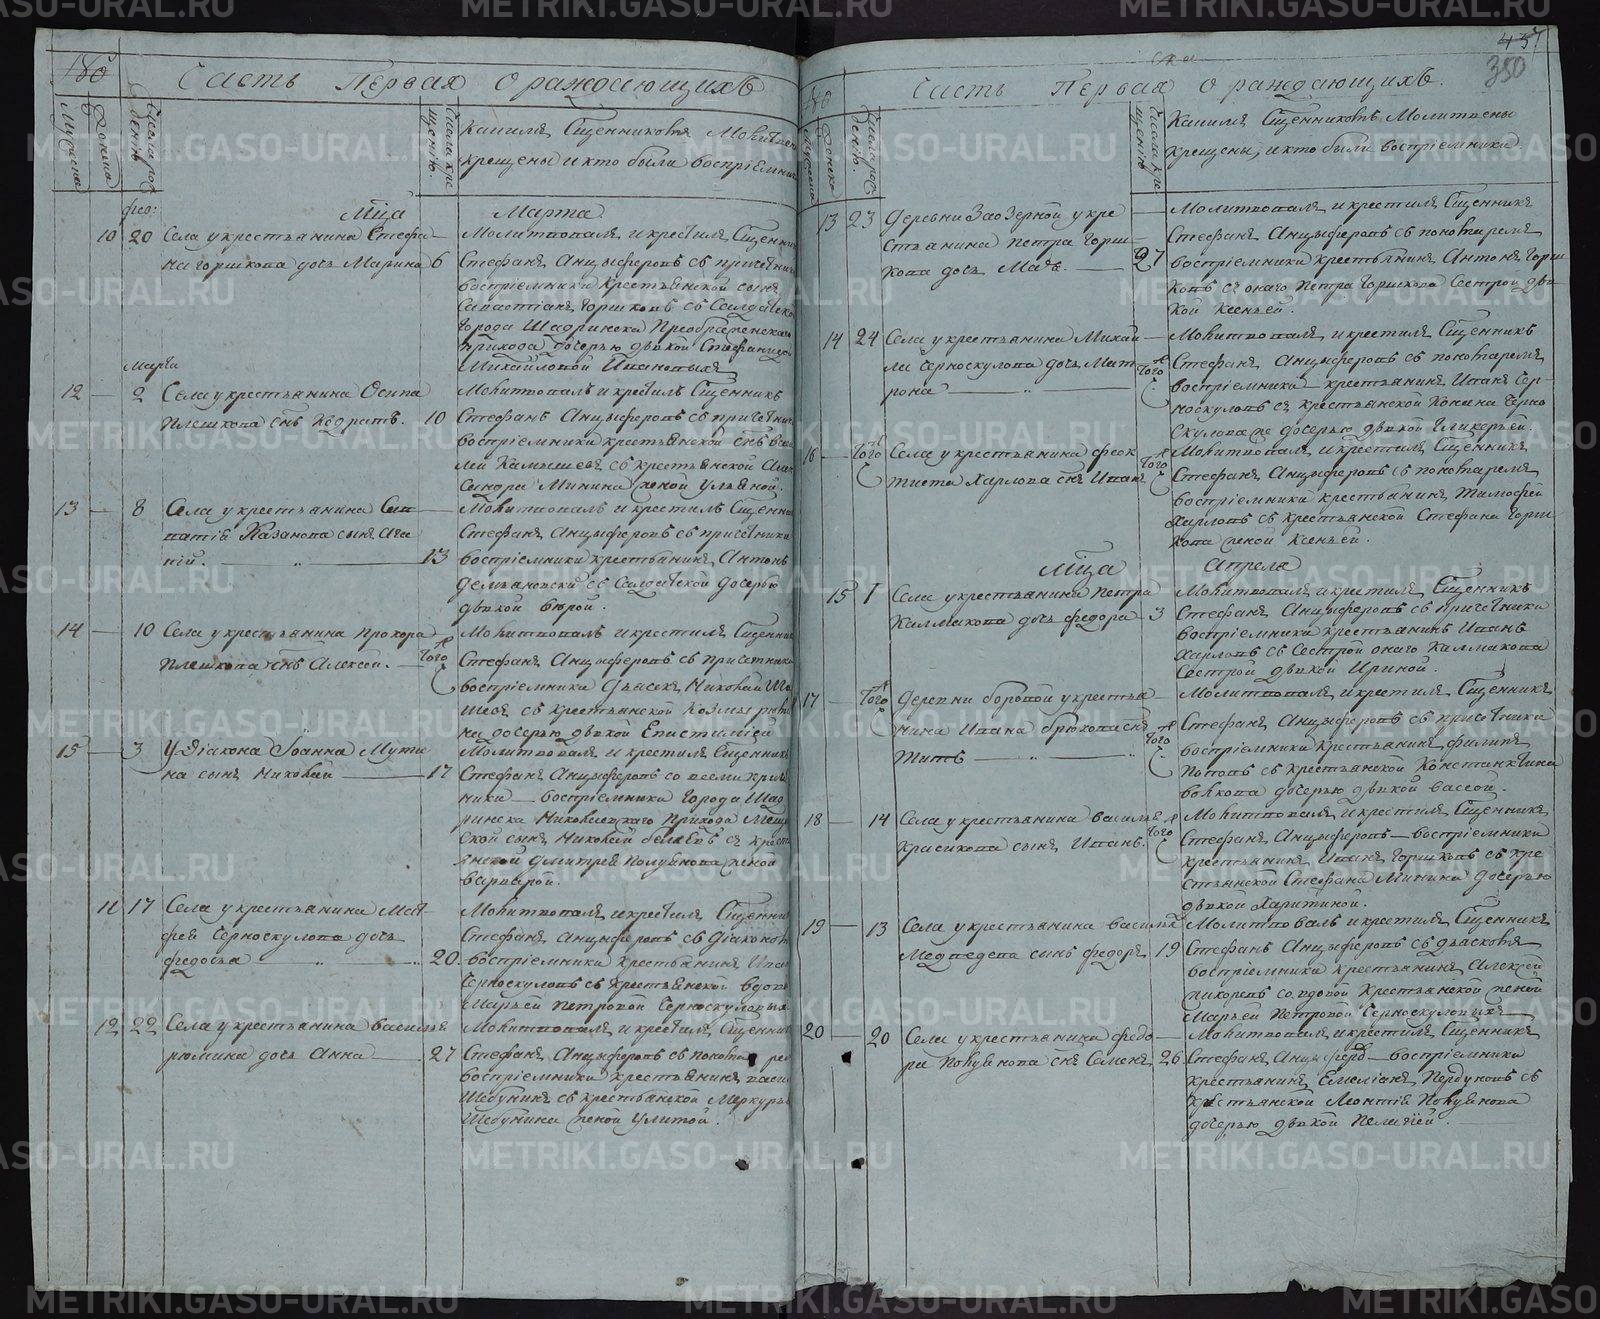 180
Часть Первая О раждающихъ
Мужеска
Женска
Числа рож
денiя
Числа кре
щенiю.
Каимъ Сщенникомъ Молитвен
крещены и кто были воспрiемник
фев:
Мца Марта
10 20 Села у крестьянина Стефа
на Горшкова дочь Марина 6
Молитвовалъ и крестилъ Сщенник
Стефанъ Анцыферовъ съ причетник
воспрiемники Крестьянской сынъ
Савастiанъ Горшковъ съ Салдатско
города Шадринска Преображенскаго
прихода дочерью двкой Стефанидой
Михайловой Ивановыхъ
Марта
12 2 Села у крестьянина Осипа
Плешкова снъ Кодратъ. 10
Молитвовалъ и крестилъ Сщенникъ
Стефанъ Анцыферовъ съ причетник
воспрiемники крестьянской снъ Васи
лей Камышевъ съ крестьянской Алек
сандра Минина женой Ульяной.
13 8 Села у крестьянина
Казанова сынъ Ага
пiй. 13
Молитвовалъ и крестилъ Сщенник
Стефанъ Анцыферовъ съ причетники
воспрiемники крестьянинъ Антонъ
Демьяновски съ Салдатской дочерью
двкой
14 10 Села у крестьянина Прохора
Плешкова снъ Алексей. Того
Молитвовалъ и крестилъ Сщенник
Стефанъ Анцыферовъ съ причетники
воспрiемники Дьячекъ Николай
шевъ съ крестьянской Козмы
на дочерью двкой Епистимiей
15 3 У Дiакона Iоанна Мути
на сынъ Николай 17
Молитвовалъ и крестилъ Сщенникъ
Стефанъ Анцыферовъ со всеми
ники воспрiемники города Шад
ринска Николаевскаго прихода Мещан
ской сынъ Николай съ кресть
янской Дмитрея Полуянова женой
варварой.
11 17 Села у крестьянина Мат
фея Черноскулова дочь
федосья 20.
Молитвовалъ и крестилъ Сщенник
Стефанъ Анцыферовъ съ Дiакономъ
воспрiемники крестьянинъ Иван
Черноскуловъ съ крестьянской вдовой
Марьей Петровой Черноскуловыхъ
12 22 Села у крестьянина василья
рюмина дочь Анна 27
Молитвовалъ и крестилъ Сщенник
Стефанъ Анцыферовъ съ пономаремъ
воспрiемники крестьянинъ васи
Шебунинъ съ крестьянской Меркурья
Шебунина женой Улитой.
437
350
Часть Первая О раждающихъ.
Мужеска
Женска
Числа рож
денiю.
Числа кре
щенiю
Каимъ Сщенникомъ Молитвены
крещены, и кто были воспрiемники
13 23 Деревни Заозерной у кре
стьянина Петра Горш
кова дочь Мавра. 27
Молитвовалъ и крестилъ Сщенникъ
Стефанъ Анцыферовъ съ пономаремъ
воспрiемники крестьянинъ Антонъ Горш
ковъ съ онаго Петра Горшкова Сестрой дв
кой Ксеньей.
14 24 Села у крестьянина Михай
ла Черноскулова дочь Мат
рона Того
Молитвовалъ и крестилъ Сщенникъ
Стефанъ Анцыферовъ съ пономаремъ
воспрiемники крестьянинъ Иванъ Чер
носкуловъ съ крестьянской Конана Черно
скулова же дочерью двкой Гликерьей.
16 Того Села у крестьянина феок
тиста Харлова снъ Иванъ Того
Молитвовалъ и крестилъ Сщенникъ
Стефанъ Анцыферовъ съ пономаремъ
воспрiемники крестьянинъ Тимофей
Харловъ съ крестьянской Стефана Горш
кова женой Ксеньей.
Мца Апреля
15 1 Села у крестьянина Петра
Калмакова дочь федора 3
Молитвовалъ и крестилъ Сщенникъ
Стефанъ Анцыферовъ съ причетники
воспрiемники крестьянинъ Иванъ
Харловъ съ Сестрой онаго Калмакова
Сестрой двкой Ириной.
17 Того Деревни боровой у крестья
нина Ивана брюхова снъ
Титъ Того
Молитвовалъ и крестилъ Сщенникъ
Стефанъ Анцыферовъ съ причетники
воспрiемники крестьянинъ филипъ
Поповъ съ крестьянской Констанктина
волкова дочерью двкой вассой.
18 14 Села у крестьянина василья
Красикова сынъ Иванъ. Того
Молитвовалъ и крестилъ Сщенникъ
Стефанъ Анцыферовъ воспрiемники
крестьянинъ Иванъ Горшковъ съ кре
стьянской Стефана Минина дочерью
двкой Харитиной.
19 13 Села у крестьянина василья
Медведева сынъ федоръ 19
Молитвовалъ и крестилъ Сщенникъ
Стефанъ Анцыферовъ съ дьяконъ
воспрiемники крестьянинъ Алексей
съ вдовой крестьянской женой
Марьей Петровой Черноскуловыхъ
20 20 Села у крестьянина федо
ра Полуянова снъ Семенъ 26
Молитвовалъ и крестилъ Сщенникъ
Стефанъ Анцыферовъ воспрiемники
крестьянинъ Емелiанъ Пердуновъ съ
крестьянской Леонтiя Полуянова
дочерью двкой Пелагiей.